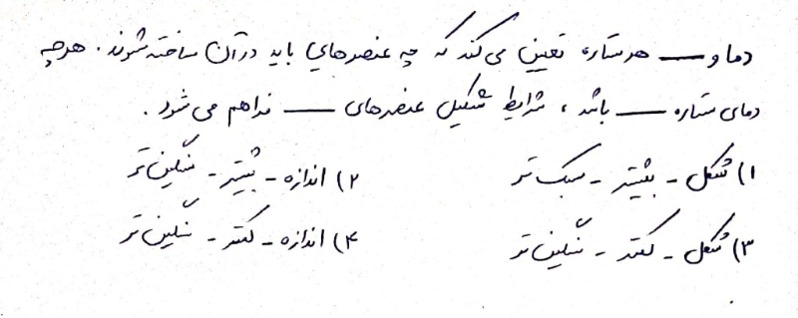 دما و ـــــ هر ستاره تعیین می کند که چه عنصرهایی باید در آن ساخته شوند. هرچه
دمای ستاره ـــــ باشد، شرایط تشکیل عنصرهای ـــــ فراهم می شود.
۱) شکل - بیشتر - سبک تر ۲) اندازه - بیشتر - سنگین تر
۳) شکل - کمتر - سنگین تر ۴) اندازه - کمتر - سنگین تر